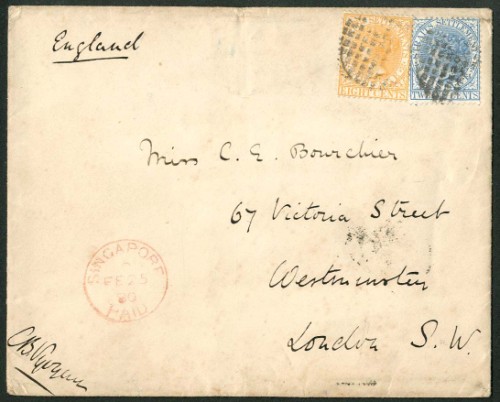 England
STRAITS SETTLEMENTS
EIGHT CENTS
CENTS
Miss C. E. Bourchier
67 Victoria Street
Westminster
London S. W.
SINGAPORE
FE 25
PAID